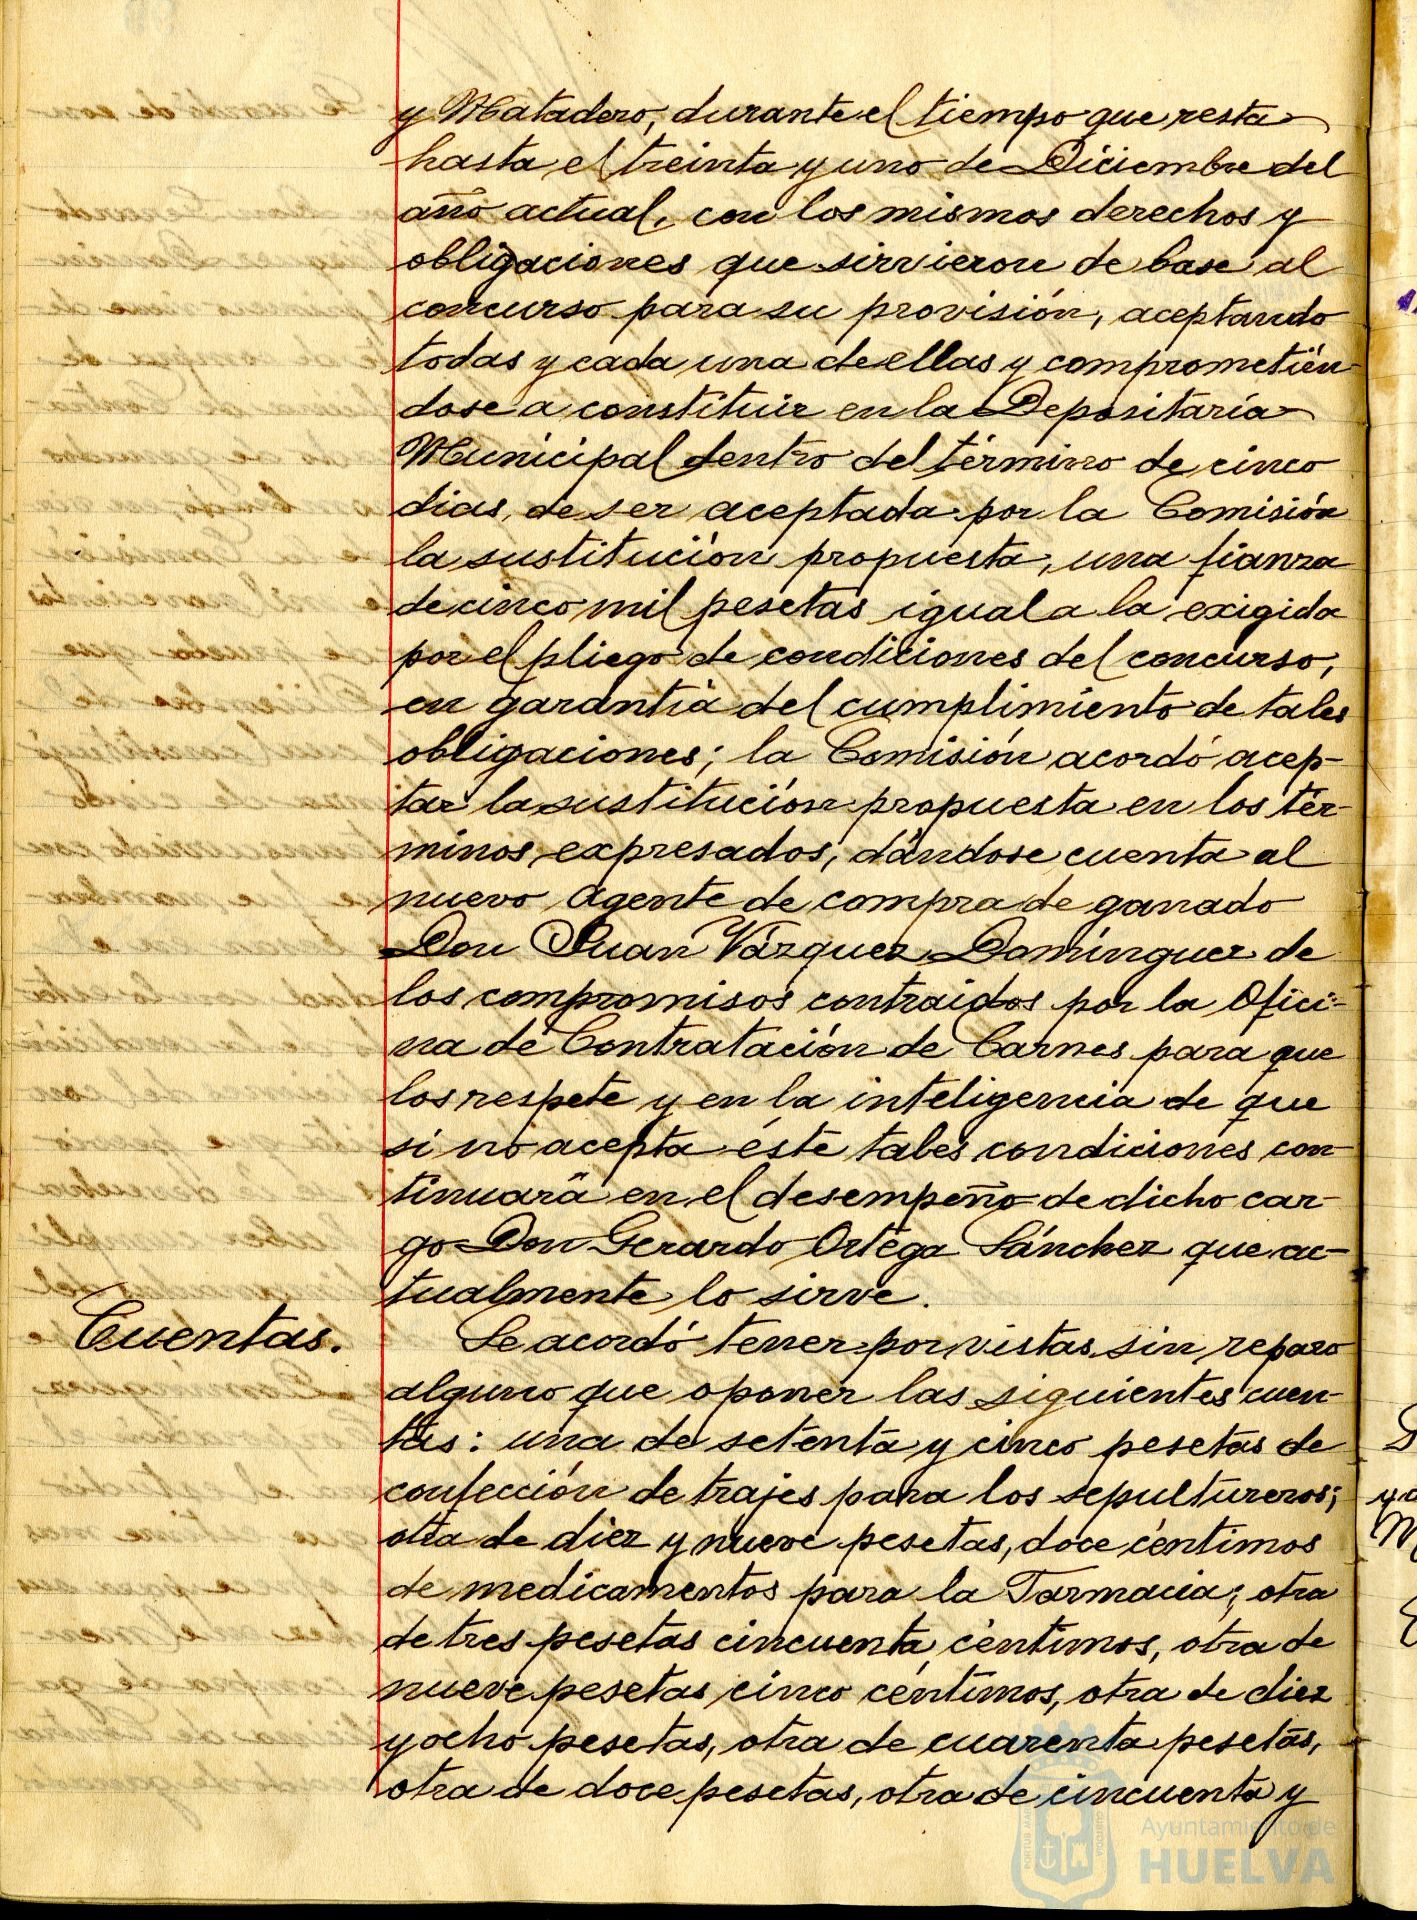 y Matadero, durante el tiempo que resta
hasta el treinta y uno de Diciembre del
año actual, con los mismos derechos y
obligaciones que sirvieron de base al
concurso para su provisión, aceptando
todas y cada una de ellas y comprometién-
dose a constituir en la Depositaría
Municipal dentro del término de cinco
dias, de ser aceptada por la Comisión
la sustitución propuesta, una fianza
de cinco mil pesetas igual a la exigida
por el pliego de condiciones del concurso,
en garantía del cumplimiento de tales
obligaciones; la Comisión acordó acep-
tar la sustitución propuesta en los tér-
minos expresados, dándose cuenta al
nuevo Agente de compra de ganado
Don Juan Vázquez Domínguez de
los compromisos contraidos por la Ofici-
na de Contratación de Carnes para que
los respete y en la inteligencia de que
si no acepta éste tales condiciones con-
tinuará en el desempeño de dicho car-
go Don Gerardo Ortega Sánchez que ac-
tualmente lo sirve.
Cuentas.
Se acordó tener por vistas sin reparo
alguno que oponer las siguientes cuen-
tas: una de setenta y cinco pesetas de
confección de trajes para los sepultureros;
otra de diez y nueve pesetas, doce céntimos
de medicamentos para la Farmacia; otra
de tres pesetas cincuenta céntimos, otra de
nueve pesetas cinco céntimos, otra de diez
y ocho pesetas, otra de cuarenta pesetas,
otra de doce pesetas, otra de cincuenta y
Ayuntamiento de
HUELVA